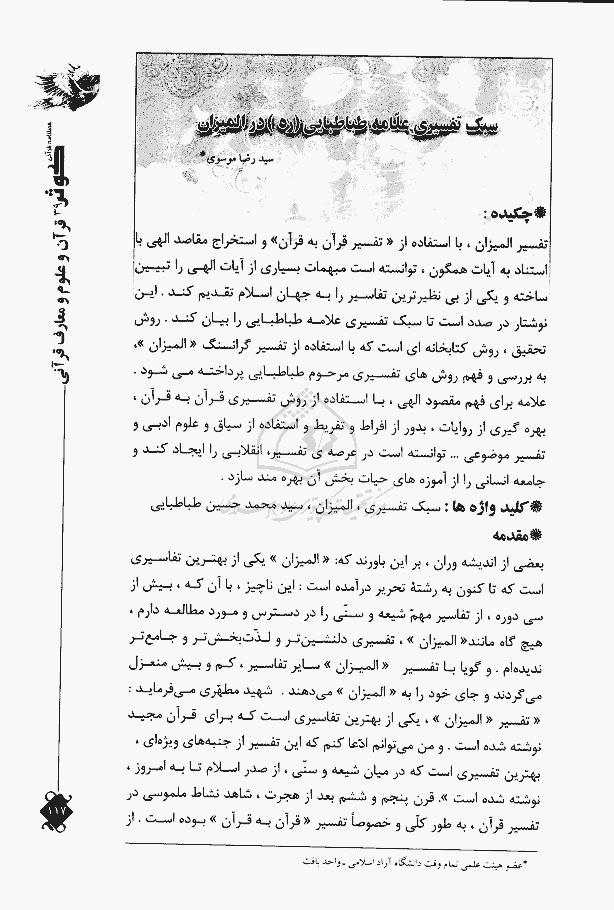 سبک تفسیری علامه طباطبایی(ره) در المیزان
سید رضا موسوی*
چکیده :
تفسیر المیزان ، با استفاده از « تفسیر قرآن به قرآن» و استخراج مقاصد الهی با
استناد به آیات همگون ، توانسته است مبهمات بسیاری از آیات الهی را تبیین
ساخته و یکی از بی نظیرترین تفاسیر را به جهان اسلام تقدیم کند . این
نوشتار در صدد است تا سبک تفسیری علامه طباطبایی را بیان کند . روش
تحقیق ، روش کتابخانه ای است که با استفاده از تفسیر گرانسنگ « المیزان »،
به بررسی و فهم روش های تفسیری مرحوم طباطبایی پرداخته می شود .
علامه برای فهم مقصود الهی ، با استفاده از روش تفسیری قرآن به قرآن ،
بهره گیری از روایات ، بدور از افراط و تفریط و استفاده از سیاق و علوم ادبی و
تفسیر موضوعی ... توانسته است در عرصه ی تفسیر، انقلابی را ایجاد کند و
جامعه انسانی را از آموزه های حیات بخش آن بهره مند سازد .
کلید واژه ها : سبک تفسیری ، المیزان ، سید محمد حسین طباطبایی
مقدمه
بعضی از اندیشه وران ، بر این باورند که: « المیزان » یکی از بهترین تفاسیری
است که تا کنون به رشتهٔ تحریر درآمده است : این ناچیز ، با آن که ، بیش از
سی دوره ، از تفاسیر مهمّ شیعه و سنّی را در دسترس و مورد مطالعه دارم ،
هیچ گاه مانند« المیزان » ، تفسیری دلنشین‌تر و لذّت‌بخش‌تر و جامع‌تر
ندیده‌ام . و گویا با تفسیر « المیزان » سایر تفاسیر ، کم و بیش منعزل
می‌گردند و جای خود را به « المیزان » می‌دهند . شهید مطهّری می‌فرماید :
« تفسیر « المیزان » ، یکی از بهترین تفاسیری است که برای قرآن مجید
نوشته شده است . و من می‌توانم ادّعا کنم که این تفسیر از جنبه‌های ویژه‌ای ،
بهترین تفسیری است که در میان شیعه و سنّی ، از صدر اسلام تا به امروز ،
نوشته شده است ». قرن پنجم و ششم بعد از هجرت ، شاهد نشاط ملموسی در
تفسیر قرآن ، به طور کلّی و خصوصاً تفسیر « قرآن به قرآن » بوده است . از
*عضو هیئت علمی تمام وقت دانشگاه آزاد اسلامی ـ واحد بافت
فصلنامه قرآنی
کوثر ۳۹ قرآن و علوم و معارف قرآنی
۱۱۷